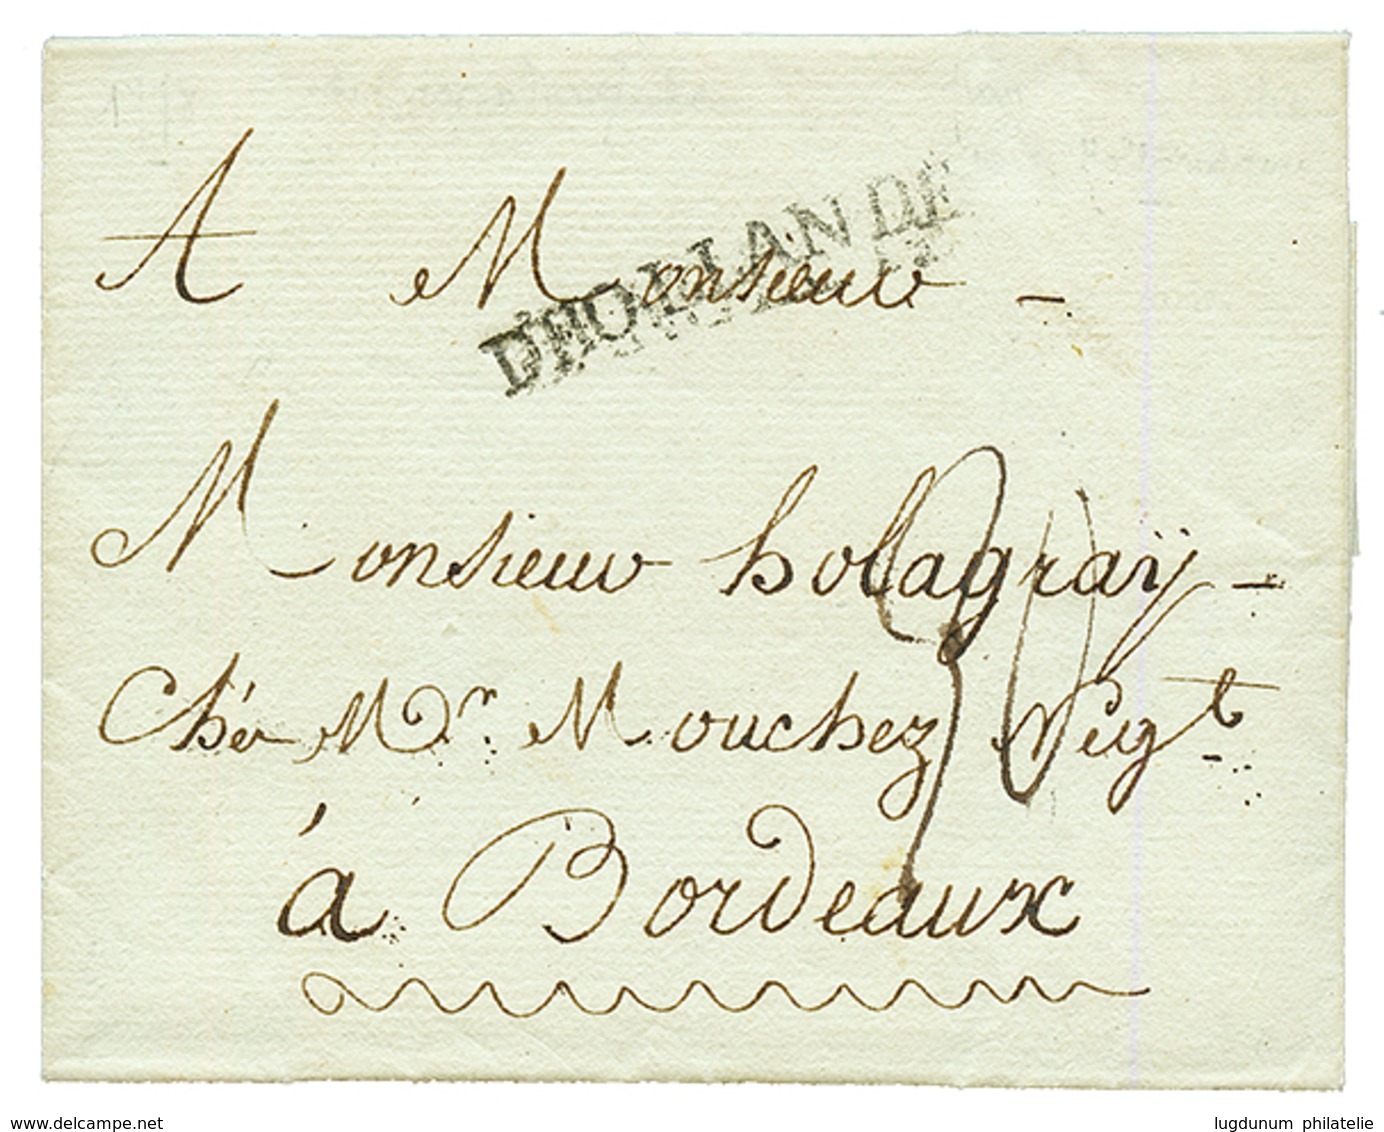 A Monsieur -
D'HOLLANDE
Monsieur holagraÿ -
Chés Mr. Mouchez Negt
30
à Bordeaux
www.delcampe.net
lugdunum philatelie